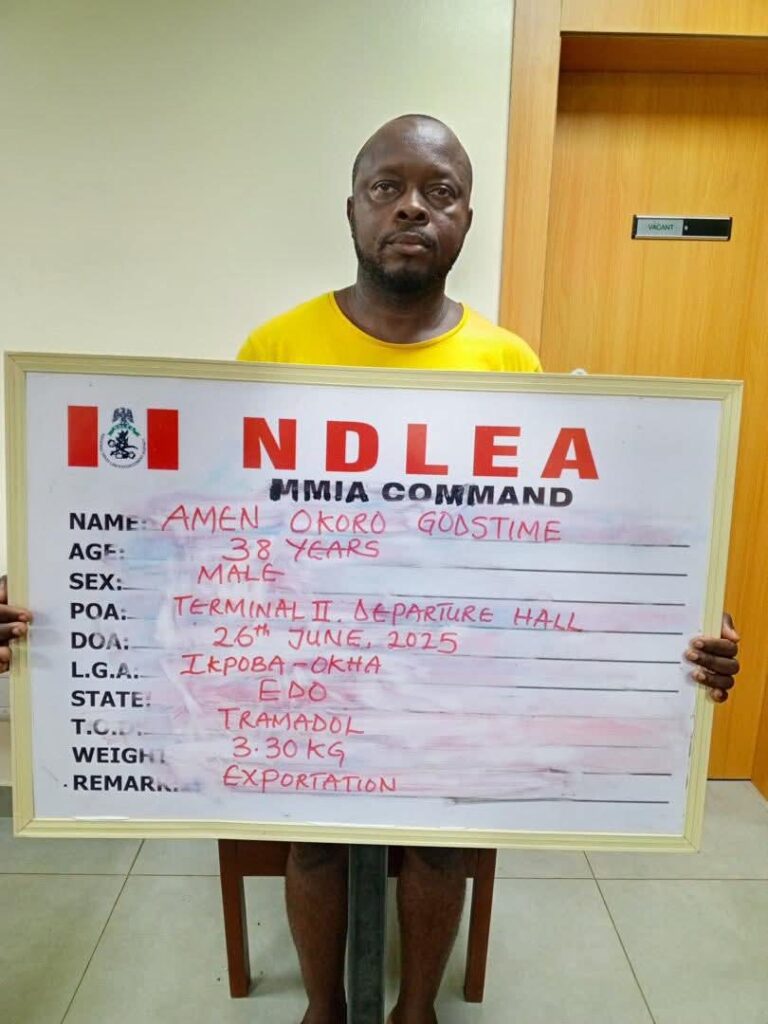 VACANT
NDLEA
MMIA COMMAND
NAME: AMEN OKORO GODSTIME
AGE: 38 YEARS
SEX: MALE
POA: TERMINAL II. DEPARTURE HALL
DOA: 26th JUNE, 2025
L.G.A: IKPOBA-OKHA
STATE: EDO
T.O.D: TRAMADOL
WEIGHT 3.30KG
REMARK: EXPORTATION